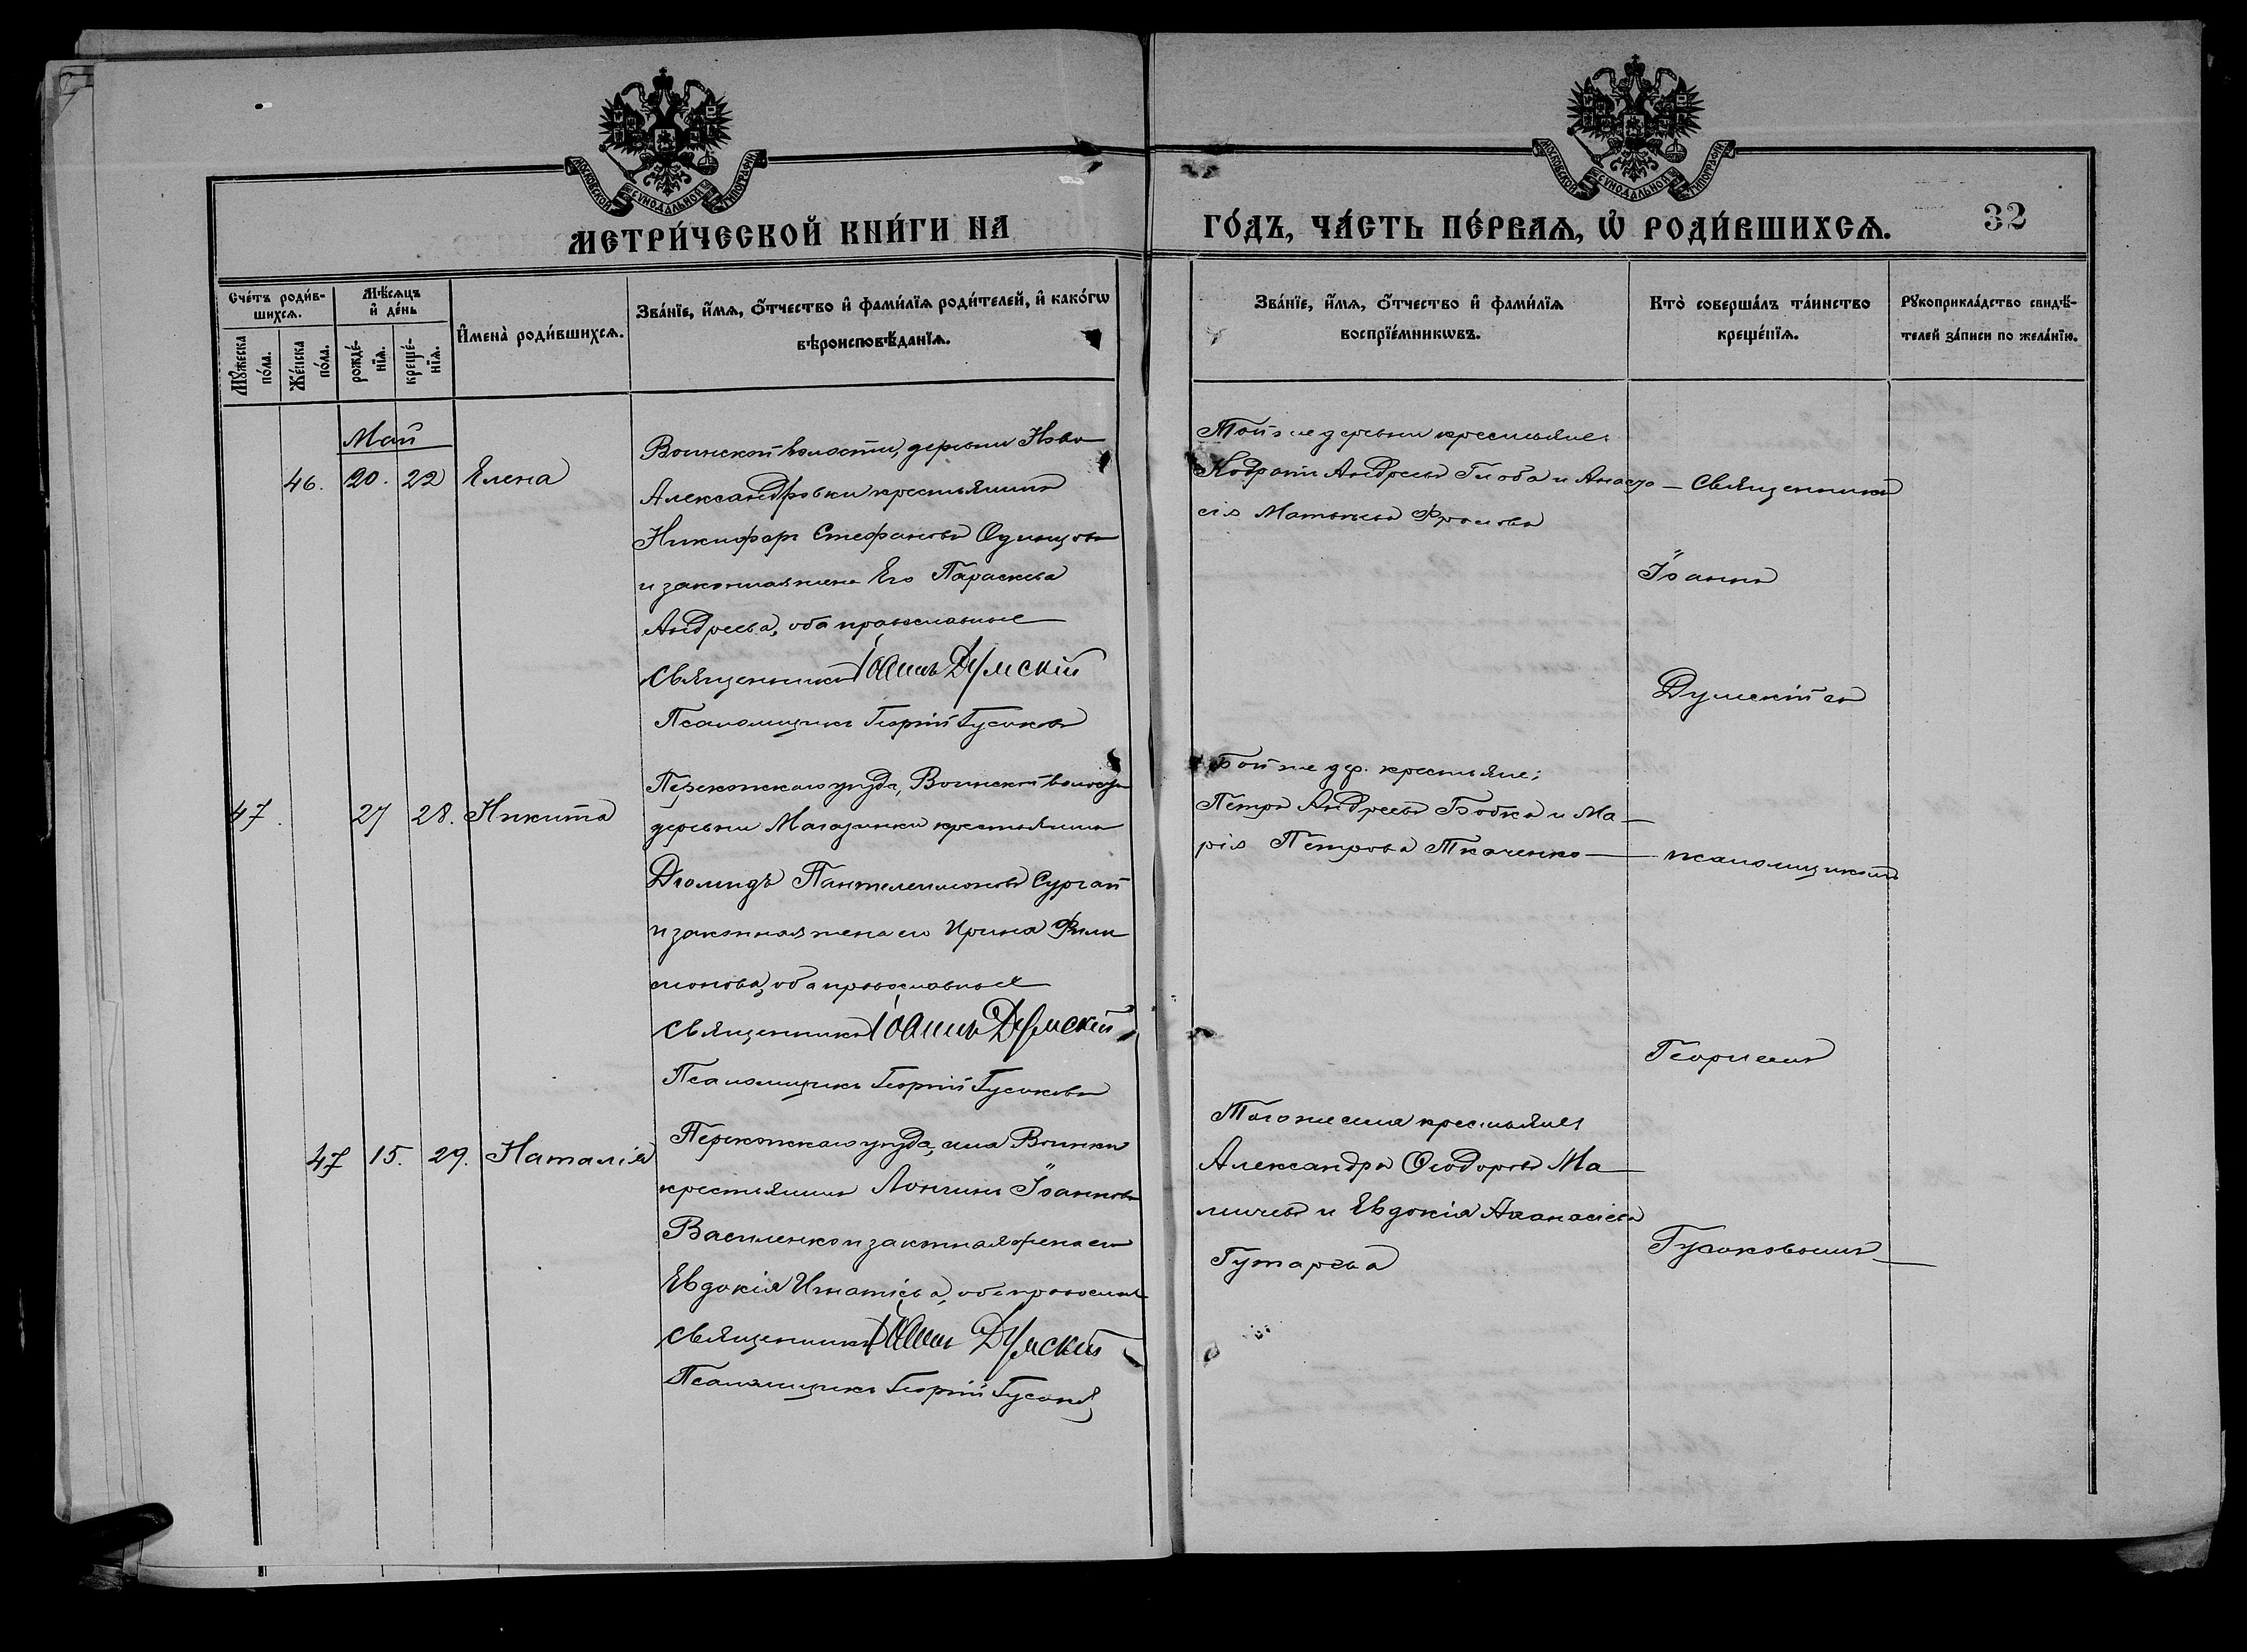 МОСКОВСКОЙ СѴНОДАЛЬНОЙ ТИПОГРАФІИ
МОСКОВСКОЙ СѴНОДАЛЬНОЙ ТИПОГРАФІИ
МЕТРИ́ЧЕСКОЙ КНИ́ГИ НА ГО́ДЪ, ЧА́СТЬ ПЕ́РВАѦ, Ѡ҆ РОДИ́ВШИХСѦ.
32
Сче́тъ роди́в-
шихсѧ.
Мꙋ́жеска
по́ла.
Же́нска
по́ла.
Мѣ́сѧцъ
и҆ де́нь
рожде́-
нїѧ.
креще́-
нїѧ.
И҆мена̀ роди́вшихсѧ.
Зва́нїе, и҆́мѧ, ѻ҆́тчество и҆ фами́лїѧ роди́телей, и҆ како́гѡ
вѣроисповѣ́данїѧ.
Зва́нїе, и҆́мѧ, ѻ҆́тчество и҆ фами́лїѧ
воспрїе́мникѡвъ.
Кто̀ соверша́лъ та́инство
креще́нїѧ.
Рꙋкоприкла́дство свидѣ́-
телей за́писи по жела́нїю.
Май
46. 20. 22 Елена
Воинской волости, деревни Ново
Александровки крестьянинъ
Никифоръ Стефановъ Одинцовъ
и законная жена Его Параскева
Андреева, оба православные
Священникъ Іоаннъ Думскій
Псаломщикъ Георгій Гусаковъ
Той же деревни крестьяне:
Кодратъ Андреевъ Глоба и Анаста
сія Матвеева Фролова
Священникъ
Іоаннъ
Думскій съ
47. 27 28. Никита
Перекопскаго уезда, Воинской волости
деревни Магазинки крестьянинъ
Діомидъ Пантелеимоновъ Сургай
и законная жена его Ирина Фили
монова, оба православные
Священникъ Іоаннъ Думскій
Псаломщикъ Георгій Гусаковъ
Той же дер. крестьяне:
Петръ Андреевъ Бобкъ и Ма
рія Петрова Ткаченко
псаломщикомъ
Георгіемъ
47 15. 29. Наталія
Перекопскаго уезда, села Воинки
крестьянинъ Лонгинъ Іоанновъ
Василенко и законная жена его
Евдокія Игнатіева, оба православн
Священникъ Іоаннъ Думскій
Псаломщикъ Георгій Гусаков
Того же села крестьяне
Александръ Ѳеодоровъ Ма
и Евдокія Аѳанасіева
Гутарева
Гусаковымъ